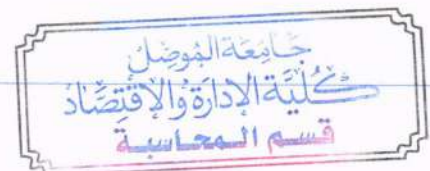 جَامِعَة المُوصِل
كُلِّيَّة الإدَارَة وَالإقتِصَاد
قسم المحاسبة